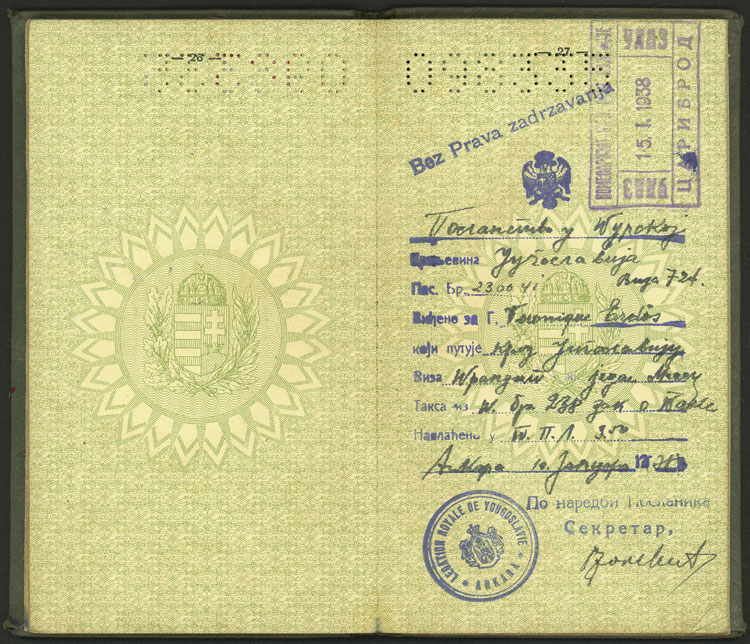 — 26 —
— 27 —
Bez Prava zadrzavanja
УЛАЗ
15. I. 1938
ЦАРИБРОД
Посланство у Турској
Краљевина Југославија
Пас. Бр. 230041 Виза 724.
Виђено за Г. Veronique Erdős
који путује кроз Југославију
Виза транзит за један месец
Такса из т. бр 238 зак о такс
Наплаћено у
Анкара 10. Јануара 1938
По наредби Посланика
Секретар,
LEGATION ROYALE DE YOUGOSLAVIE
* ANKARA *